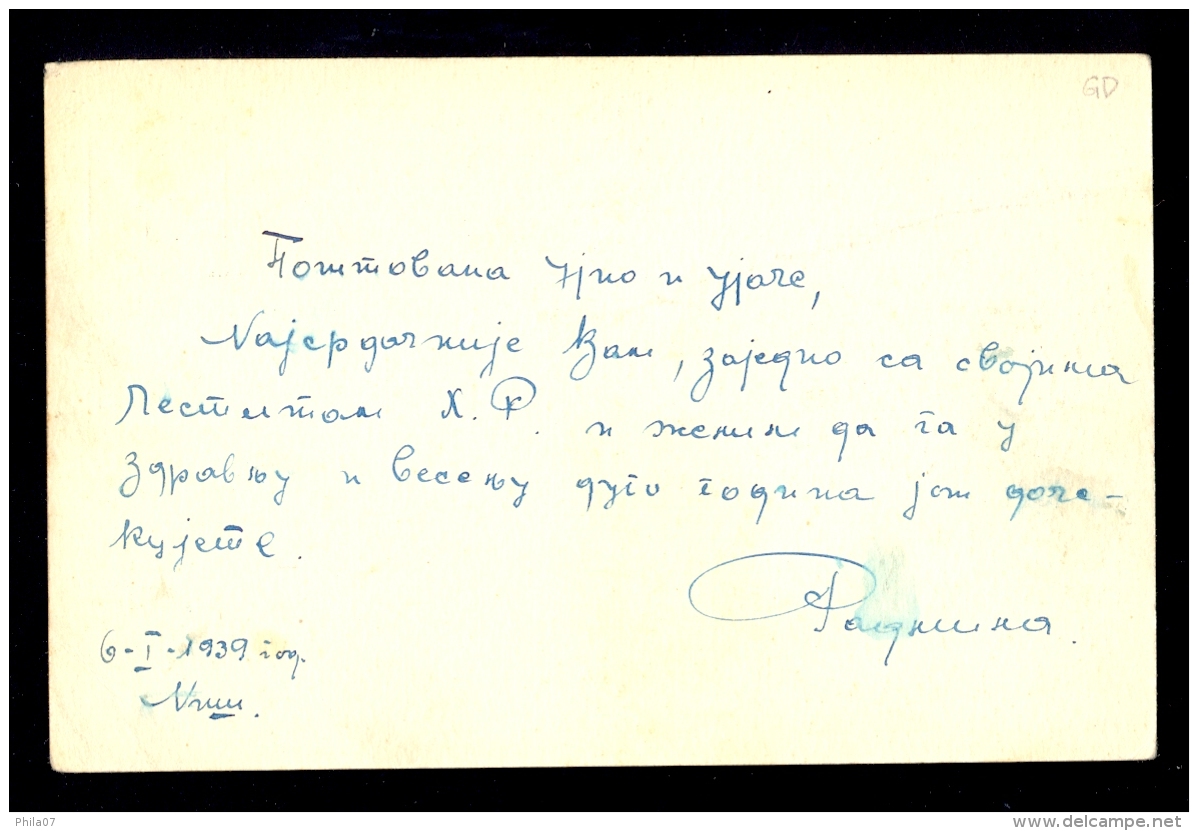 GD
Поштована Ујно и Ујаче,
Најсрдачније Вам, заједно са својима
честитам Х.Р. и желим да га у
здрављу и весељу дуго година још доче-
кујете.
6-I-1939 год.
Ниш.
Phila07
delcampe.net